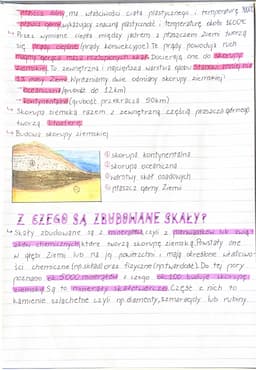 płaszcz górny, ma właściwości ciała plastycznego i temperaturę
wykazujący znaczną plastyczność i temperaturę około 1600°C
↳ Przez wymianę ciepła między jądrem a płaszczem Ziemi tworzą
się prądy cieplne (prądy konwekcyjne). Te prądy powodują ruch
magmy górnej masa roztopionych skał. Docierają one do skorupy
ziemskiej. To zewnętrzna i najcieńsza warstwa globu. Stanowi mniej niż
1% masy Ziemi. Wyróżniamy dwie odmiany skorupy ziemskiej:
- oceaniczna (grubość do 12 km)
- kontynentalna (grubość przekracza 50 km)
↳ Skorupa ziemska razem z zewnętrzną częścią płaszcza górnego
tworzą litosferę.
↳ Budowa skorupy ziemskiej
① skorupa kontynentalna
② skorupa oceaniczna
③ warstwy skał osadowych
④ płaszcz górny Ziemi
Z CZEGO SĄ ZBUDOWANE SKAŁY?
↳ Skały zbudowane są z minerałów, czyli z pierwiastków lub zwią-
zków chemicznych, które tworzą skorupę ziemską. Powstały one
w głębi Ziemi lub na jej powierzchni i mają określone właściwo-
ści chemiczne (np. skład) oraz fizyczne (np. twardość). Do tej pory
poznano ok. 5000 minerałów z czego ok. 100 buduje skorupę
ziemską. Są to minerały skałotwórcze. Część z nich to
kamienie szlachetne czyli np. diamenty, szmaragdy lub rubiny.